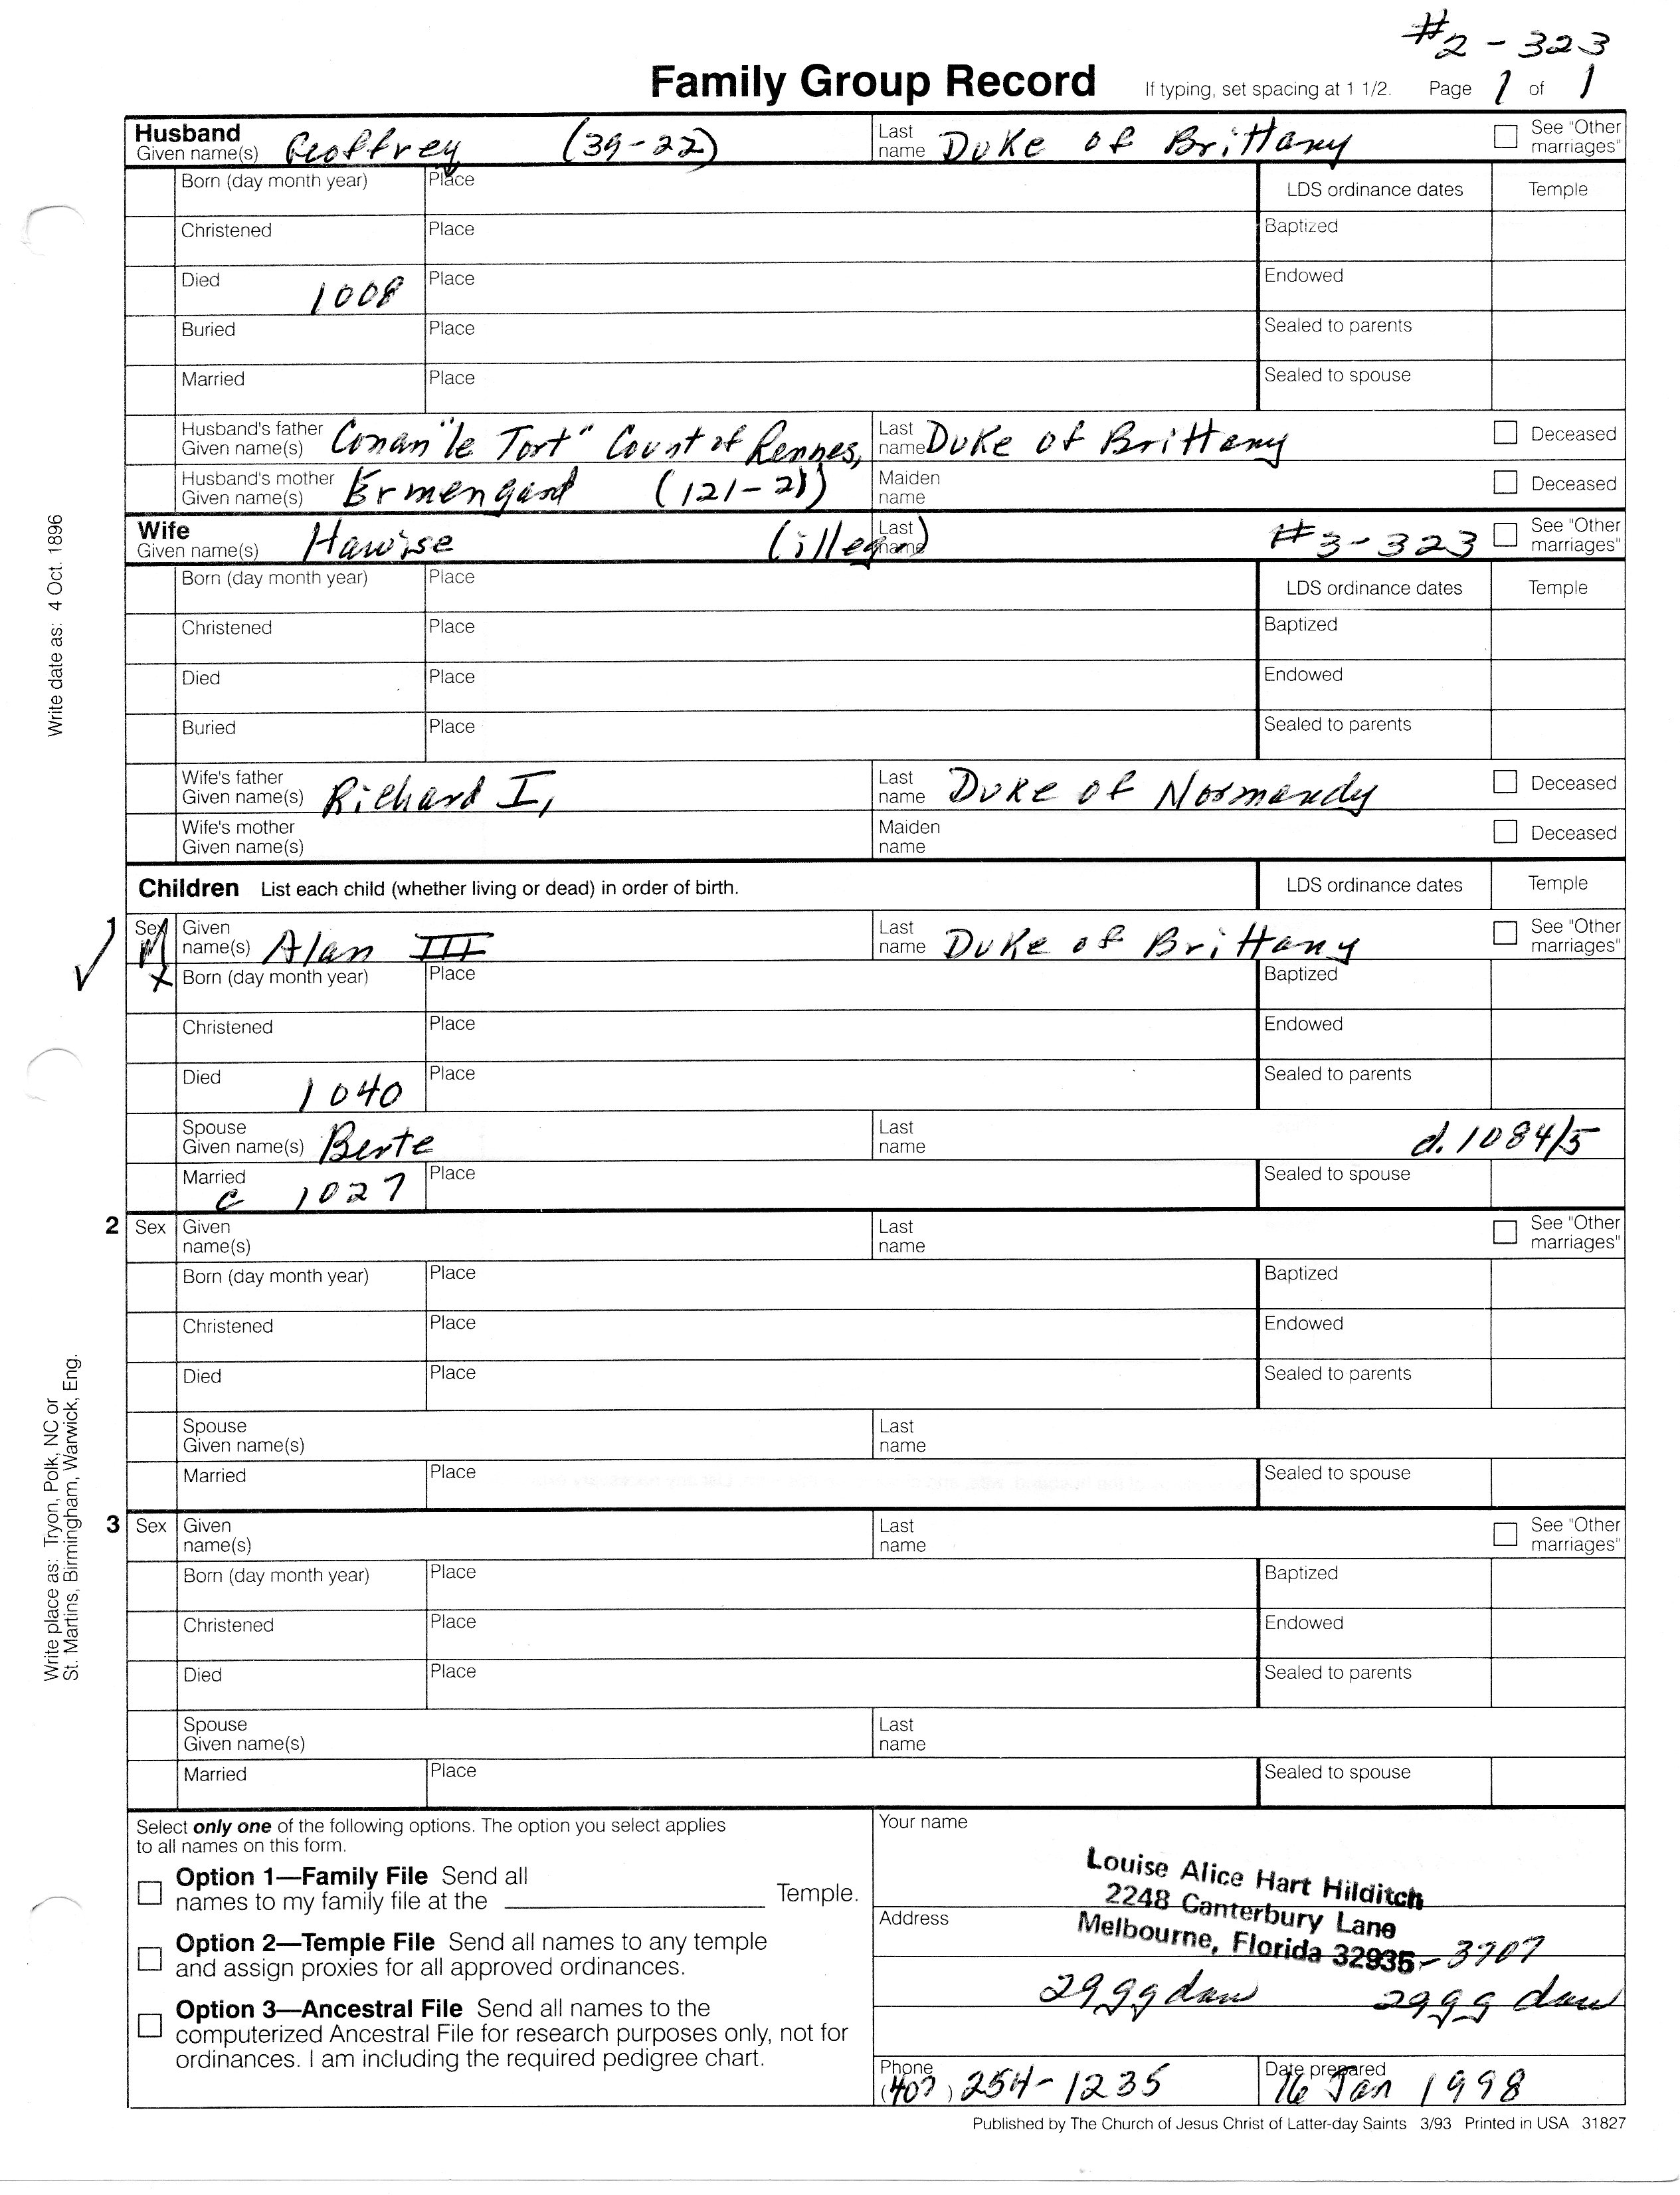 #2 - 323
Family Group Record If typing, set spacing at 1 1/2. Page 1 of 1
Husband
Given name(s) Geoffrey (39-22) Last name Duke of Brittany See "Other marriages"
Born (day month year) Place LDS ordinance dates Temple
Christened Place Baptized
Died 1008 Place Endowed
Buried Place Sealed to parents
Married Place Sealed to spouse
Husband's father Given name(s) Conan "le Tort" Count of Rennes, Last name Duke of Brittany Deceased
Husband's mother Given name(s) Ermengard (121-21) Maiden name Deceased
Wife
Given name(s) Hawise (illeg) Last name #3-323 See "Other marriages"
Born (day month year) Place LDS ordinance dates Temple
Christened Place Baptized
Died Place Endowed
Buried Place Sealed to parents
Wife's father Given name(s) Richard I, Last name Duke of Normandy Deceased
Wife's mother Given name(s) Maiden name Deceased
Children List each child (whether living or dead) in order of birth. LDS ordinance dates Temple
1 Sex M Given name(s) Alan III Last name Duke of Brittany See "Other marriages"
X Born (day month year) Place Baptized
Christened Place Endowed
Died 1040 Place Sealed to parents
Spouse Given name(s) Berte Last name d. 1084/5
Married c 1027 Place Sealed to spouse
2 Sex Given name(s) Last name See "Other marriages"
Born (day month year) Place Baptized
Christened Place Endowed
Died Place Sealed to parents
Spouse Given name(s) Last name
Married Place Sealed to spouse
3 Sex Given name(s) Last name See "Other marriages"
Born (day month year) Place Baptized
Christened Place Endowed
Died Place Sealed to parents
Spouse Given name(s) Last name
Married Place Sealed to spouse
Write date as: 4 Oct. 1896
Write place as: Tryon, Polk, NC or
St. Martins, Birmingham, Warwick, Eng.
Select only one of the following options. The option you select applies
to all names on this form.
Option 1—Family File Send all
names to my family file at the Temple.
Option 2—Temple File Send all names to any temple
and assign proxies for all approved ordinances.
Option 3—Ancestral File Send all names to the
computerized Ancestral File for research purposes only, not for
ordinances. I am including the required pedigree chart.
Your name
Louise Alice Hart Hilditch
2248 Canterbury Lane
Address
Melbourne, Florida 32935-3707
29 gg dau 29 g g dau
Phone (407) 254-1235 Date prepared 16 Jan 1998
Published by The Church of Jesus Christ of Latter-day Saints 3/93 Printed in USA 31827